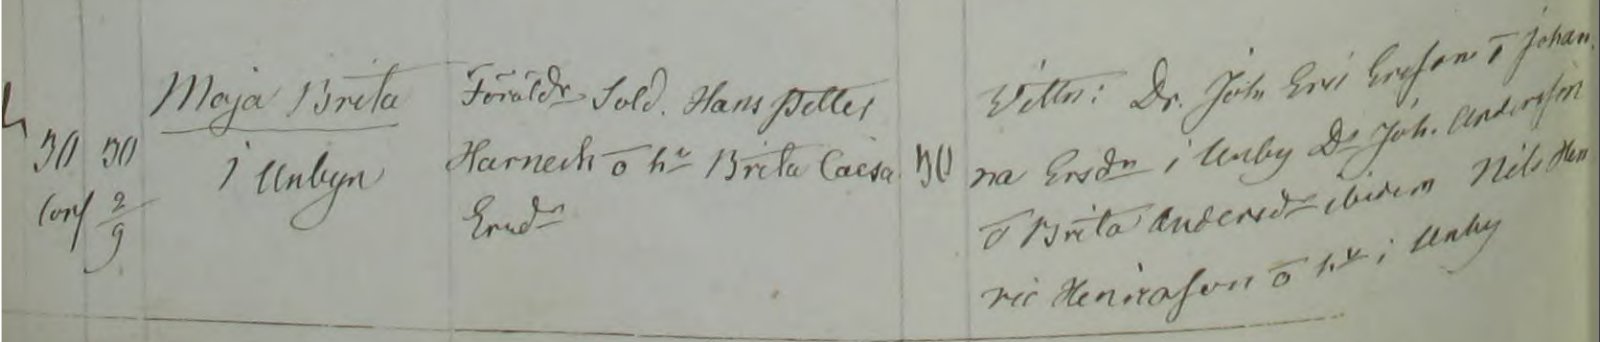 30 30
conf 2/9
Maja Brita
i Unbyn
Föräldr Sold. Hans Petter
Harnesk o hu Brita Caisa
Ersdr
30
Vittn: Dr. Joh Eric Ersson o Johan
na Ersdr i Unby Dr Joh. Andersson
o Brita Andersdr ibidem Nils Hen
ric Henricsson o hu i Unby